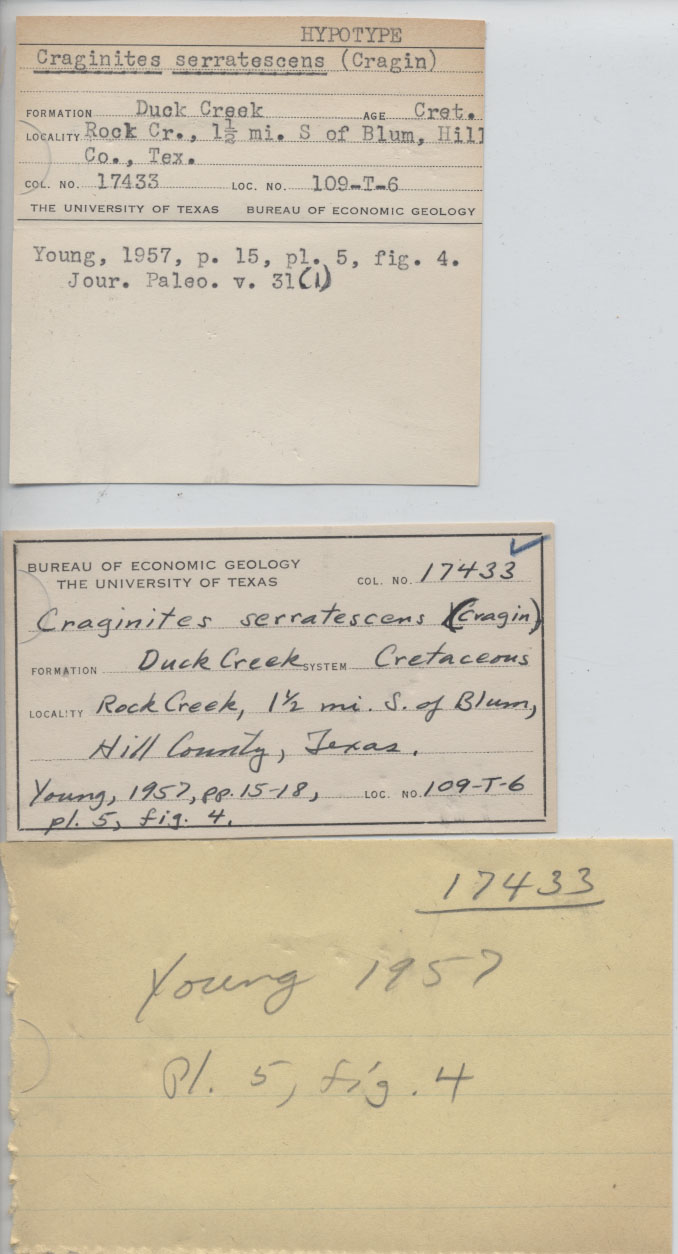 HYPOTYPE
Craginites serratescens (Cragin)
FORMATION Duck Creek AGE Cret.
LOCALITY Rock Cr., 1½ mi. S of Blum, Hill
Co., Tex.
COL. NO. 17433 LOC. NO. 109-T-6
THE UNIVERSITY OF TEXAS BUREAU OF ECONOMIC GEOLOGY
Young, 1957, p. 15, pl. 5, fig. 4.
Jour. Paleo. v. 31(1)
BUREAU OF ECONOMIC GEOLOGY
THE UNIVERSITY OF TEXAS COL. NO. 17433
Craginites serratescens (Cragin)
FORMATION Duck Creek SYSTEM Cretaceous
LOCALITY Rock Creek, 1½ mi. S. of Blum,
Hill County, Texas.
Young, 1957, pp. 15-18, LOC. NO. 109-T-6
pl. 5, fig. 4.
17433
Young 1957
Pl. 5, fig. 4